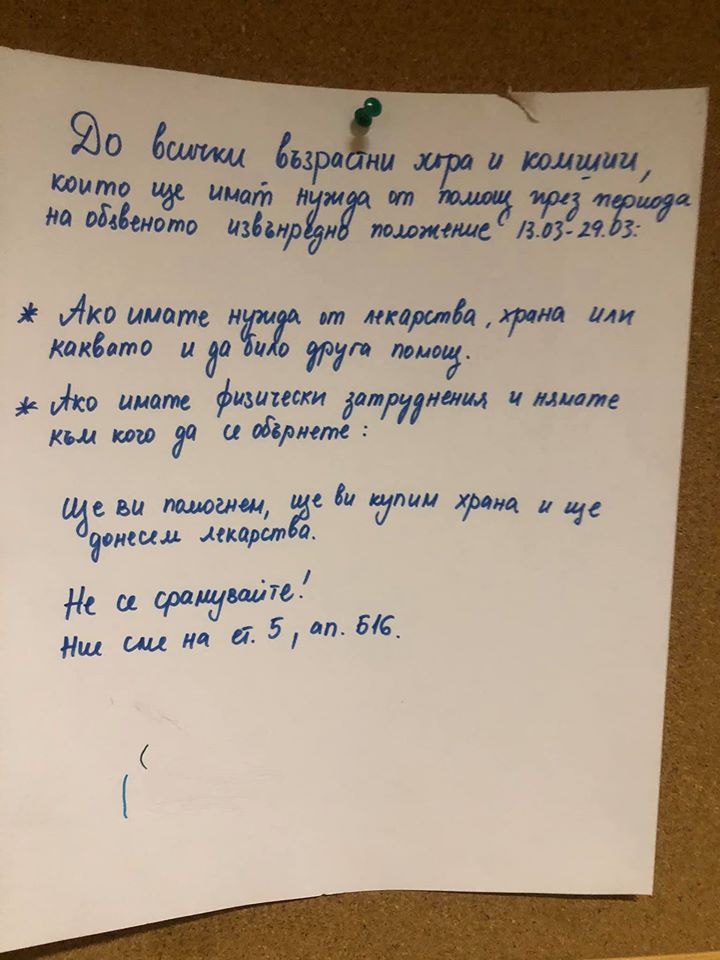 До всички възрастни хора и комшии,
които ще имат нужда от помощ през периода
на обявеното извънредно положение 13.03-29.03:
* Ако имате нужда от лекарства, храна или
каквато и да било друга помощ.
* Ако имате физически затруднения и нямате
към кого да се обърнете:
Ще ви помогнем, ще ви купим храна и ще
донесем лекарства.
Не се срамувайте!
Ние сме на ет. 5, ап. 516.